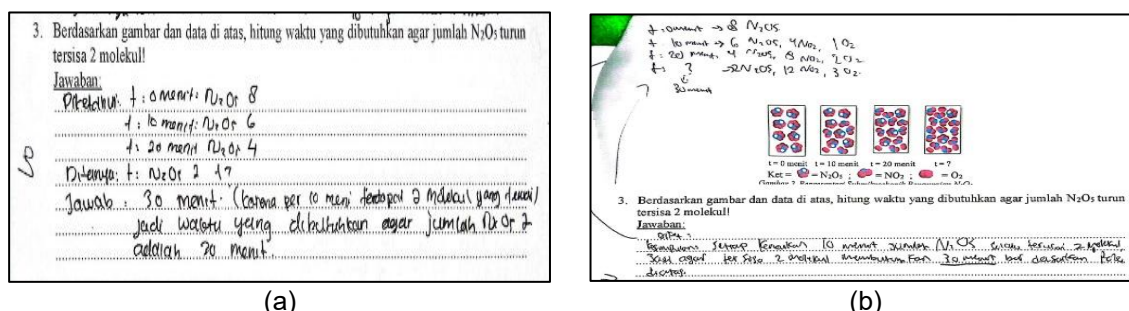 3. Berdasarkan gambar dan data di atas, hitung waktu yang dibutuhkan agar jumlah N₂O₅ turun
tersisa 2 molekul!
Jawaban:
Diketahui: t: 0 menit: N₂O₅ 8
t: 10 menit: N₂O₅ 6
t: 20 menit N₂O₅ 4
Ditanya: t: N₂O₅ 2 ?
Jawab : 30 menit. (karena per 10 meni terdapat 2 molekul yang
jadi waktu yang dibutuhkan agar jumlah N₂O₅ 2
adalah 30 menit.
(a)
t: 0 menit → 8 N₂O₅
t 10 menit → 6 N₂O₅, 4NO₂, 1 O₂
t: 20 menit 4 N₂O₅, 8 NO₂, 2 O₂
t: ? → 2N₂O₅, 12 NO₂, 3 O₂
30 menit
t = 0 menit t = 10 menit t = 20 menit t = ?
Ket = = N₂O₅ ; = NO₂ ; = O₂
3. Berdasarkan gambar dan data di atas, hitung waktu yang dibutuhkan agar jumlah N₂O₅ turun
tersisa 2 molekul!
Jawaban:
setiap kenaikan 10 menit jumlah N₂O₅ terurai 2 molekul,
Jadi agar tersisa 2 molekul membutuhkan 30 menit berdasarkan
diatas.
(b)